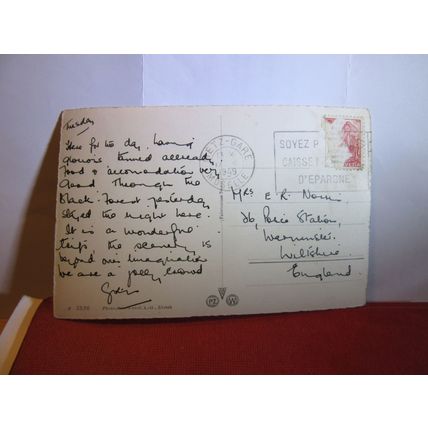 Tuesday
Here for the day, having
glorious time tanned already
food & accommodation very
good Through the
Black Forest yesterday
stayed the night here.
It is a wonderful
trip, the scenery is
beyond our imagination
we are a jolly crowd
METZ-GARE
1959
MOSELLE
SOYEZ P
CAISSE
D'EPARGNE
Mrs E. R. Norris
Police Station,
Warminster
Wiltshire.
England.
PZ